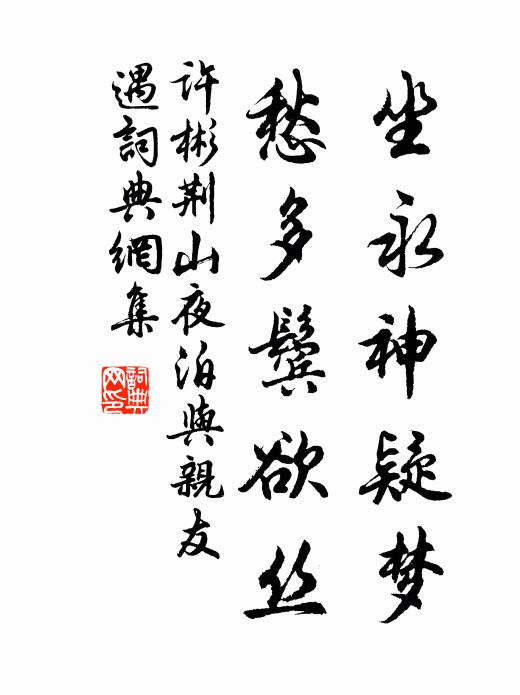 坐永神疑梦
愁多鬓欲丝
许彬荆山夜泊與親友
遇詞典網集
詞典
网印